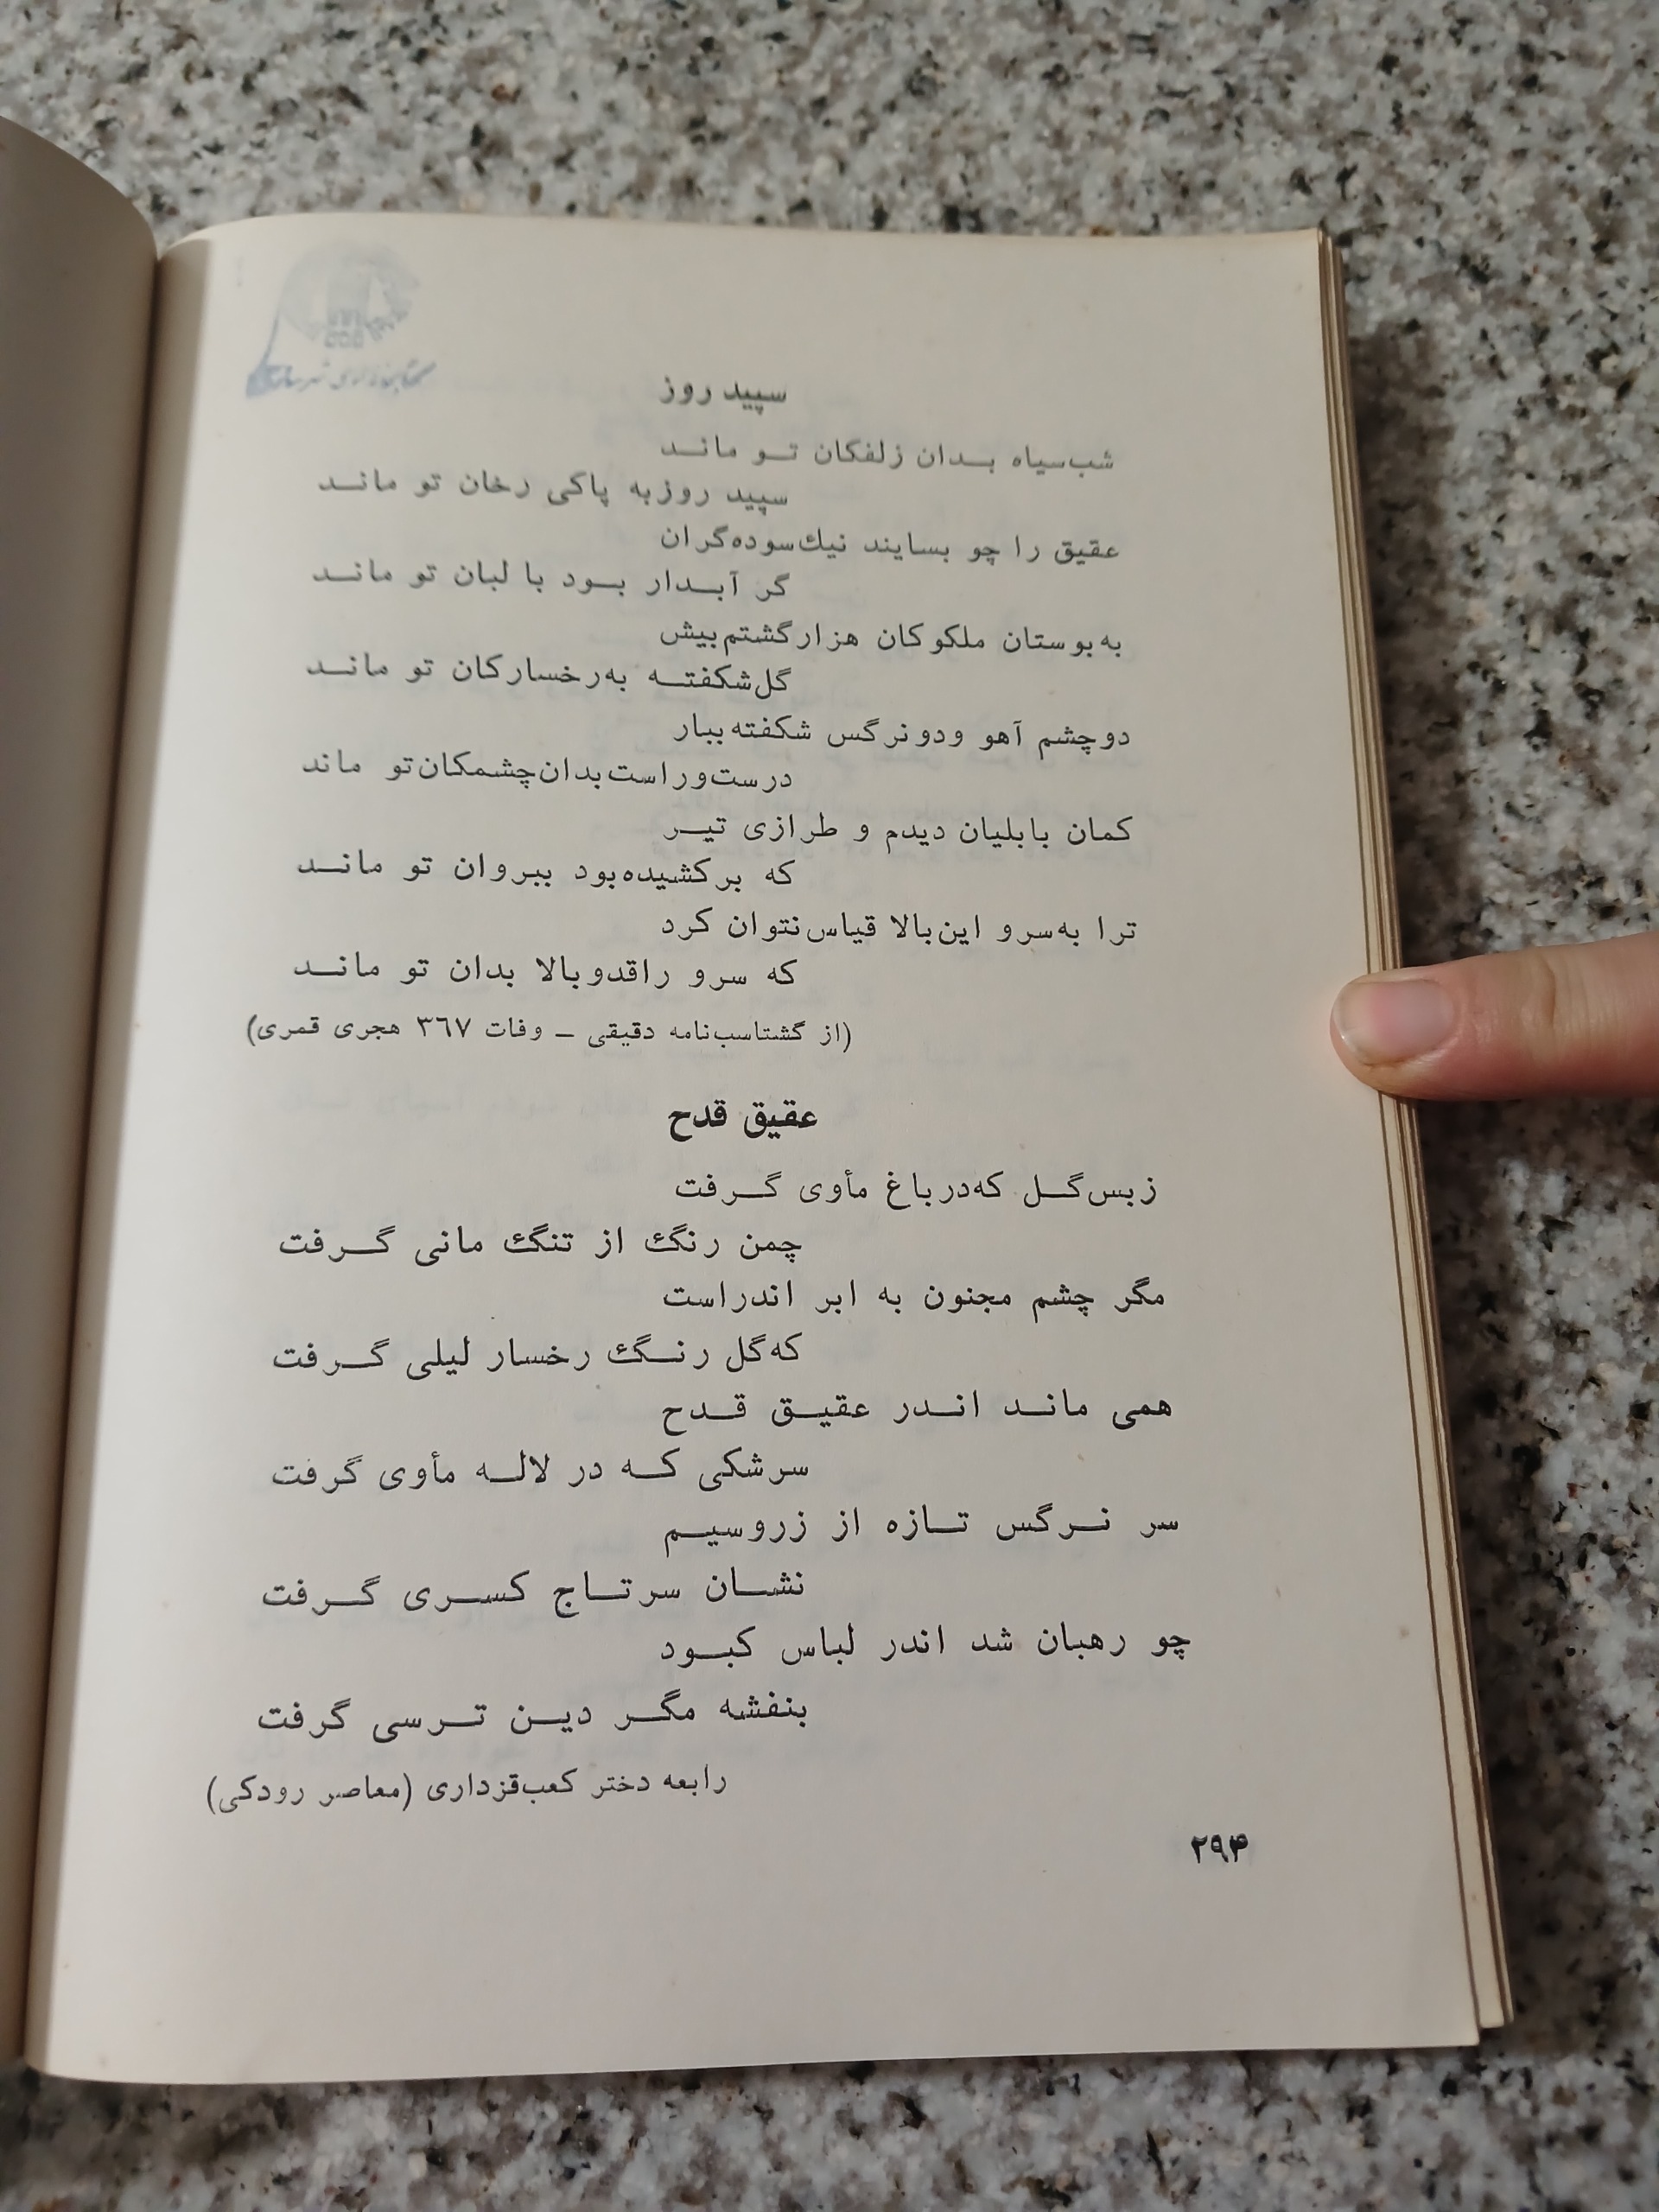 سپید روز
شب‌سیاه بدان زلفکان تو ماند
سپید روز به پاکی رخان تو ماند
عقیق را چو بسایند نیك‌سوده‌گران
گر آبدار بود با لبان تو ماند
به‌بوستان ملکوکان هزار گشتم بیش
گل‌شکفته به‌رخسارکان تو ماند
دو چشم آهو و دو نرگس شکفته ببار
درست و راست بدان چشمکان تو ماند
کمان بابلیان دیدم و طرازی تیر
که برکشیده‌بود ببروان تو ماند
ترا به‌سرو این‌بالا قیاس نتوان کرد
که سرو را قد و بالا بدان تو ماند
(از گشتاسب‌نامه دقیقی – وفات ٣٦٧ هجری قمری)
عقیق قدح
ز بس گل که در باغ مأوی گرفت
چمن رنگ از تنگ مانی گرفت
مگر چشم مجنون به ابر اندر است
که گل رنگ رخسار لیلی گرفت
همی ماند اندر عقیق قدح
سرشکی که در لاله مأوی گرفت
سر نرگس تازه از زر و سیم
نشان سر تاج کسری گرفت
چو رهبان شد اندر لباس کبود
بنفشه مگر دین ترسی گرفت
رابعه دختر کعب‌قزداری (معاصر رودکی)
۲۹۴